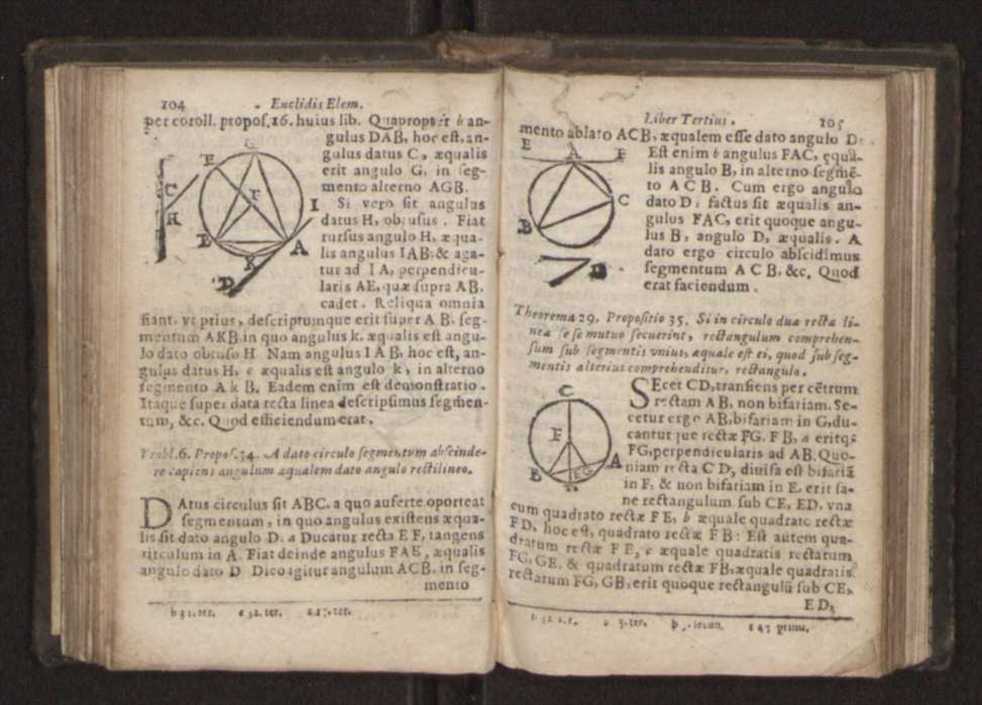 104 Euclidis Elem.
per coroll. propos. 16. huius lib. Quapropter b an-
gulus DAB, hoc est, an-
gulus datus C, æqualis
erit angulo G, in seg-
mento alterno AGB.
Si vero sit angulus
datus H, obtusus. Fiat
rursus angulo H, æqua-
lis angulus IAB: & aga-
tur ad IA, perpendicu-
laris AE, quæ supra AB,
cadet. Reliqua omnia
fiant, vt prius, descriptumque erit super A B. seg-
mentum AKB in quo angulus k. æqualis est angu-
lo dato obtuso H Nam angulus I A B, hoc est, an-
gulus datus H, c æqualis est angulo k, in alterno
segmento A k B. Eadem enim est demonstratio.
Itaque super data recta linea descripsimus segmen-
tum, &c. Quod efficiendum erat.
Probl. 6. Propos. 34. A dato circulo segmentum abscinde-
re capiens angulum æqualem dato angulo rectilineo.
DAtus circulus sit ABC. a quo auferre oporteat
segmentum, in quo angulus existens æqua-
lis sit dato angulo D. a Ducatur recta E F, tangens
circulum in A. Fiat deinde angulus FAE, æqualis
angulo dato D Dico igitur angulum ACB. in seg-
mento
b 31. ter. c 32. ter. a 17. ter.
G
E
C
F
H
I
E
A
K
D
Liber Tertius. 105
mento ablato ACB, æqualem esse dato angulo D.
Est enim b angulus FAC, equa-
lis angulo B, in alterno segmē-
to A C B. Cum ergo angulo
dato D, factus sit æqualis an-
gulus FAC, erit quoque angu-
lus B, angulo D, æqualis. A
dato ergo circulo abscidimus
segmentum A C B, &c. Quod
erat faciendum.
E A F
C
B
D
Theorema 29. Propositio 35. Si in circulo duæ rectæ li-
neæ se se mutuo secuerint, rectangulum comprehen-
sum sub segmentis vnius, æquale est ei, quod sub seg-
mentis alterius comprehenditur, rectangulo.
SEcet CD, transiens per cētrum
rectam AB, non bifariam. Se-
cetur ergo AB, bifariam in G, du-
cantur que rectæ FG, FB, a eritq;
FG, perpendicularis ad AB. Quo-
niam recta C D, diuisa est bifariā
in F, & non bifariam in E, erit sa-
ne rectangulum sub CE, ED, vna
cum quadrato rectæ F E, b æquale quadrato rectæ
FD, hoc est, quadrato rectæ F B: Est autem qua-
dratum rectæ F E, c æquale quadratis rectarum
FG, GE, & quadratum rectæ FB, æquale quadratis
rectarum FG, GB, erit quoque rectangulū sub CE,
E D,
C
F
A
B
E G
b 32. ter. a 3. ter. b 5. secun. c 47 primi.